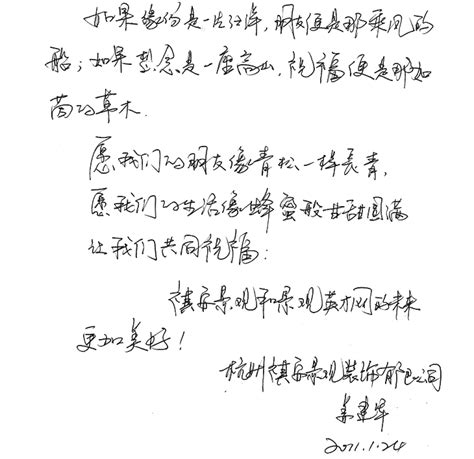 如果缘份是一片汪洋,朋友便是那乘风的
船;如果想念是一座高山,祝福便是那如
茵的草木.
愿我们的朋友像青松一样长青,
愿我们的生活像蜂蜜般甘甜圆满
让我们共同祝福:
景观和景观英才网的未来
更加美好!
杭州 景观装饰有限公司
建华
2011.1.24